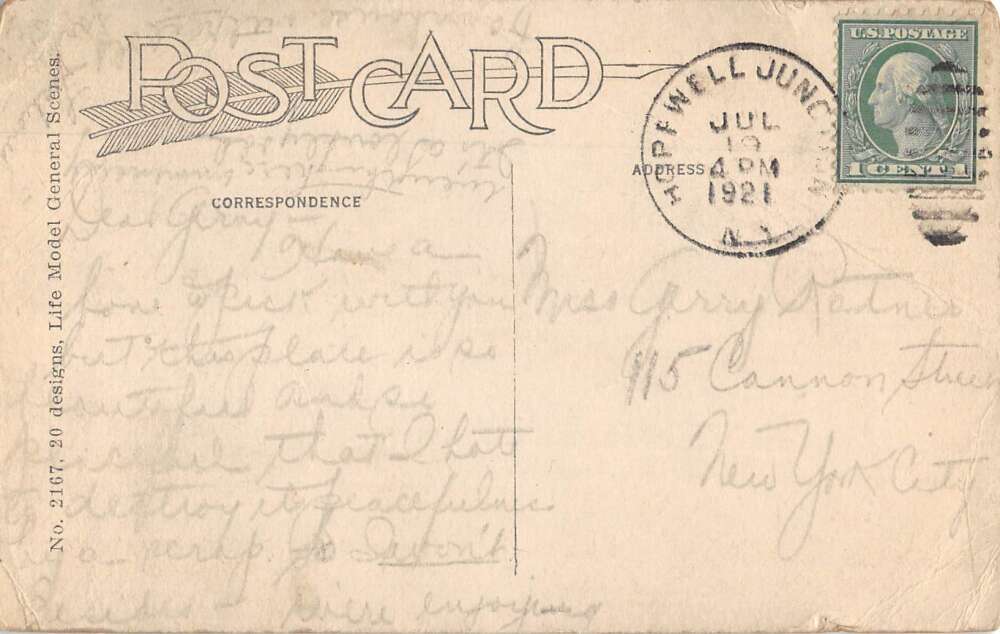 POST CARD
CORRESPONDENCE
ADDRESS
No. 2167, 20 designs, Life Model General Scenes.
HOPEWELL JUNCTION
JUL
19
4 PM
1921
N.Y.
U.S. POSTAGE
1 CENT 1
Dear Gerry -
I have a
bone to pick with you
but this place is so
beautiful and so
peaceful that I hate
to destroy its peacefulness
by a scrap. So I won't
Besides - we're enjoying
Miss Gerry
115 Cannon Street
New York City